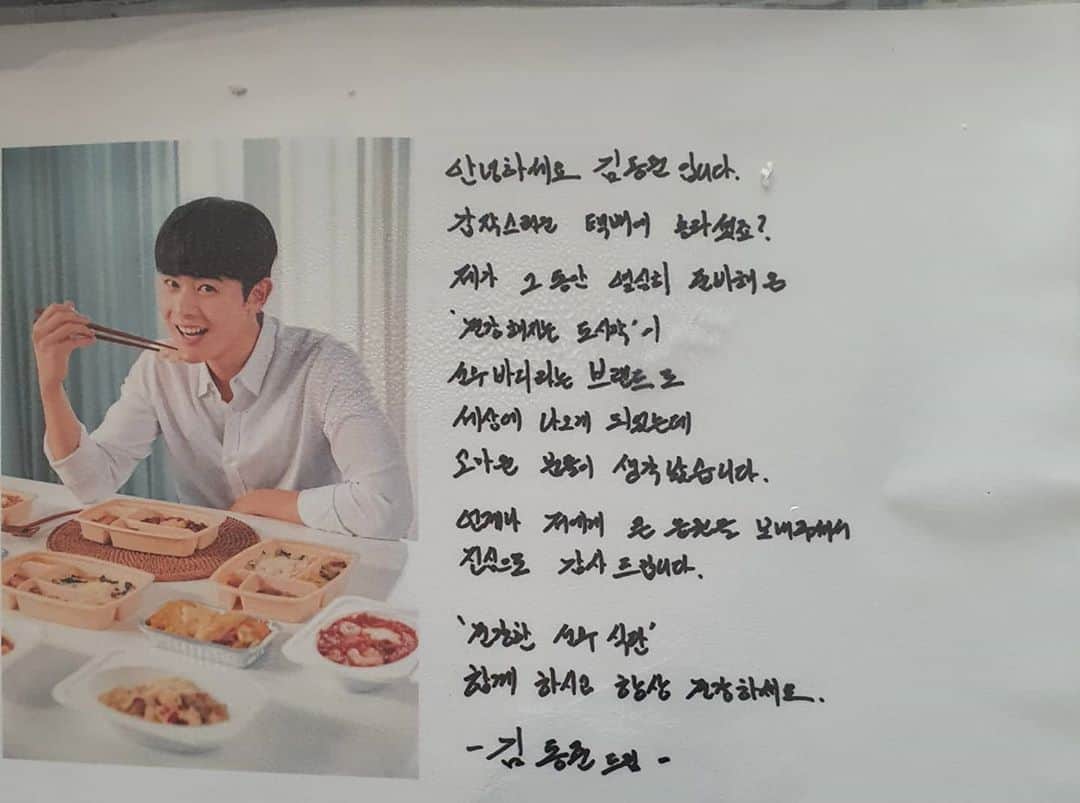 안녕하세요 김동준 입니다.
갑작스러운 택배에 놀라셨죠?
제가 그 동안 열심히 준비해 온
'건강해지는 도시락'이
바디라는 브랜드로
세상에 나오게 되었는데
고마운 분들이 생각났습니다.
언제나 저에게 큰 응원을 보내주셔서
진심으로 감사드립니다.
'건강한 식단'
함께 하시고 항상 건강하세요.
- 김동준 드림 -